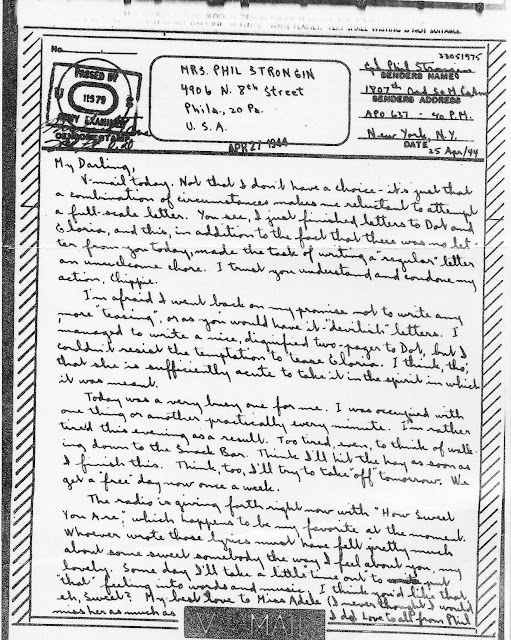 No.
PASSED BY
U S
11579
ARMY EXAMINER
CENSOR'S STAMP
MRS. PHIL STRONGIN
4906 N. 8th Street
Phila., 20 Pa.
U. S. A.
APR 27 1944
33051975
Cpl Phil Strongin
SENDER'S NAME
1807th Ord S & M Co Avn
SENDER'S ADDRESS
APO 637 - % P.M.
New York, N.Y.
DATE
25 Apr/44
My Darling,
V-mail today. Not that I don't have a choice - it's just that
a combination of circumstances makes me reluctant to attempt
a full-scale letter. You see, I just finished letters to Dot and
Gloria, and this, in addition to the fact that there was no let-
ter from you today, made the task of writing a "regular" letter
an unwelcome chore. I trust you understand and condone my
action, Chippie.
I'm afraid I went back on my promise not to write any
more "teasing", or as you would have it "devilish" letters. I
managed to write a nice, dignified two-pager to Dot, but I
couldn't resist the temptation to tease Gloria. I think, tho,
that she is sufficiently acute to take it in the spirit in which
it was meant.
Today was a very busy one for me. I was occupied with
one thing or another practically every minute. I'm rather
tired this evening as a result. Too tired, even, to think of walk-
ing down to the Snack Bar. Think I'll hit the hay as soon as
I finish this. Think, too, I'll try to take "off" tomorrow. We
get a "free" day now once a week.
The radio is giving forth right now with "How Sweet
You Are", which happens to be my favorite at the moment.
Whoever wrote those lyrics must have felt pretty much
about some sweet somebody the way I feel about you, my
lovely. Some day I'll take a little time out to put
"that" feeling into words and music. I think you'd like that,
eh, Sweet? My best love to Miss Adele (I never thought I would
miss her as much as I do) love to all from Phil
V - MAIL